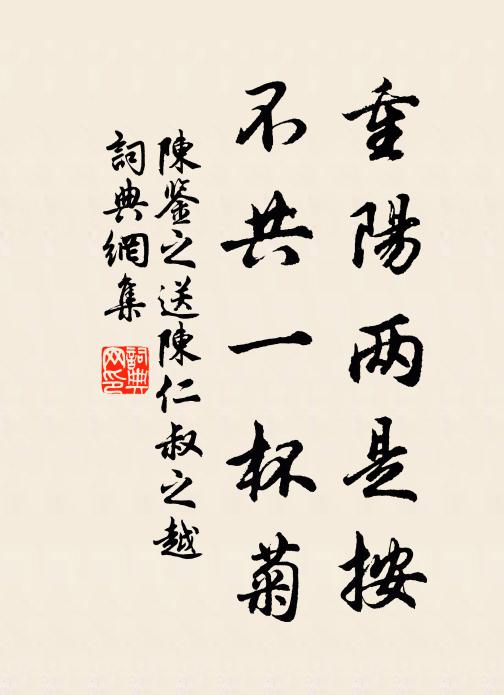 重陽两是按
不共一杯菊
陳鉴之送陳仁叔之越
詞典網集
詞典
网印